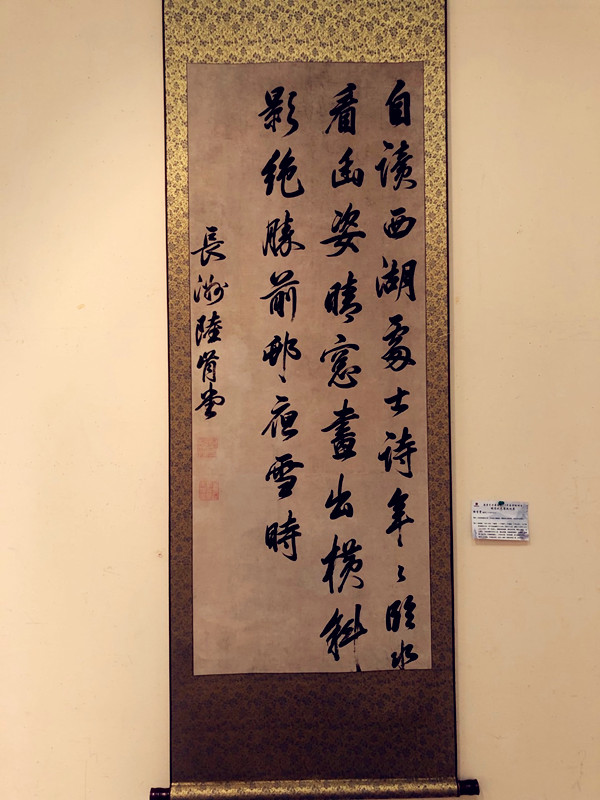 自讀西湖處士詩年〻臨水
看幽姿晴窓畫出橫斜
影絕勝前邨夜雪時
長洲陸肯堂